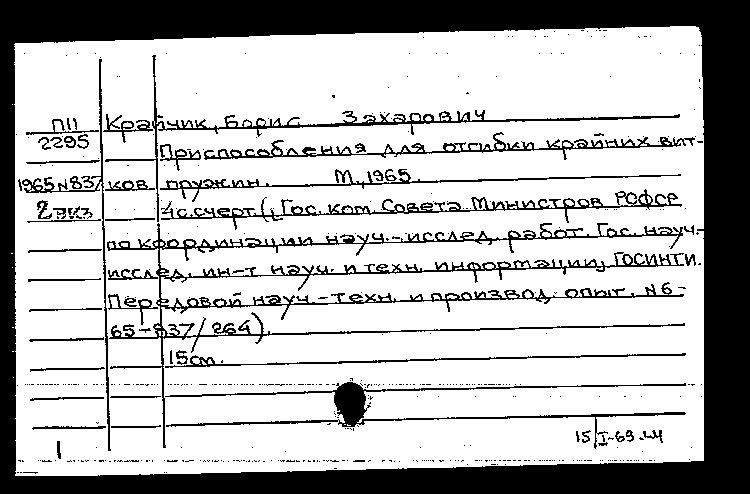 П11 Крайчик, Борис Захарович
2295
Приспособления для отгибки крайних вит-
1965 N837 ков пружин. М, 1965.
2 экз 4 с. с черт. (Гос. ком. Совета Министров РСФСР
по координации науч.-исслед. работ. Гос. науч-
исслед. ин-т науч. и техн. информации, ГОСИНТИ.
Передовой науч.-техн. и производ. опыт. N 6-
65-837/264).
15 см.
1
15/I-69.